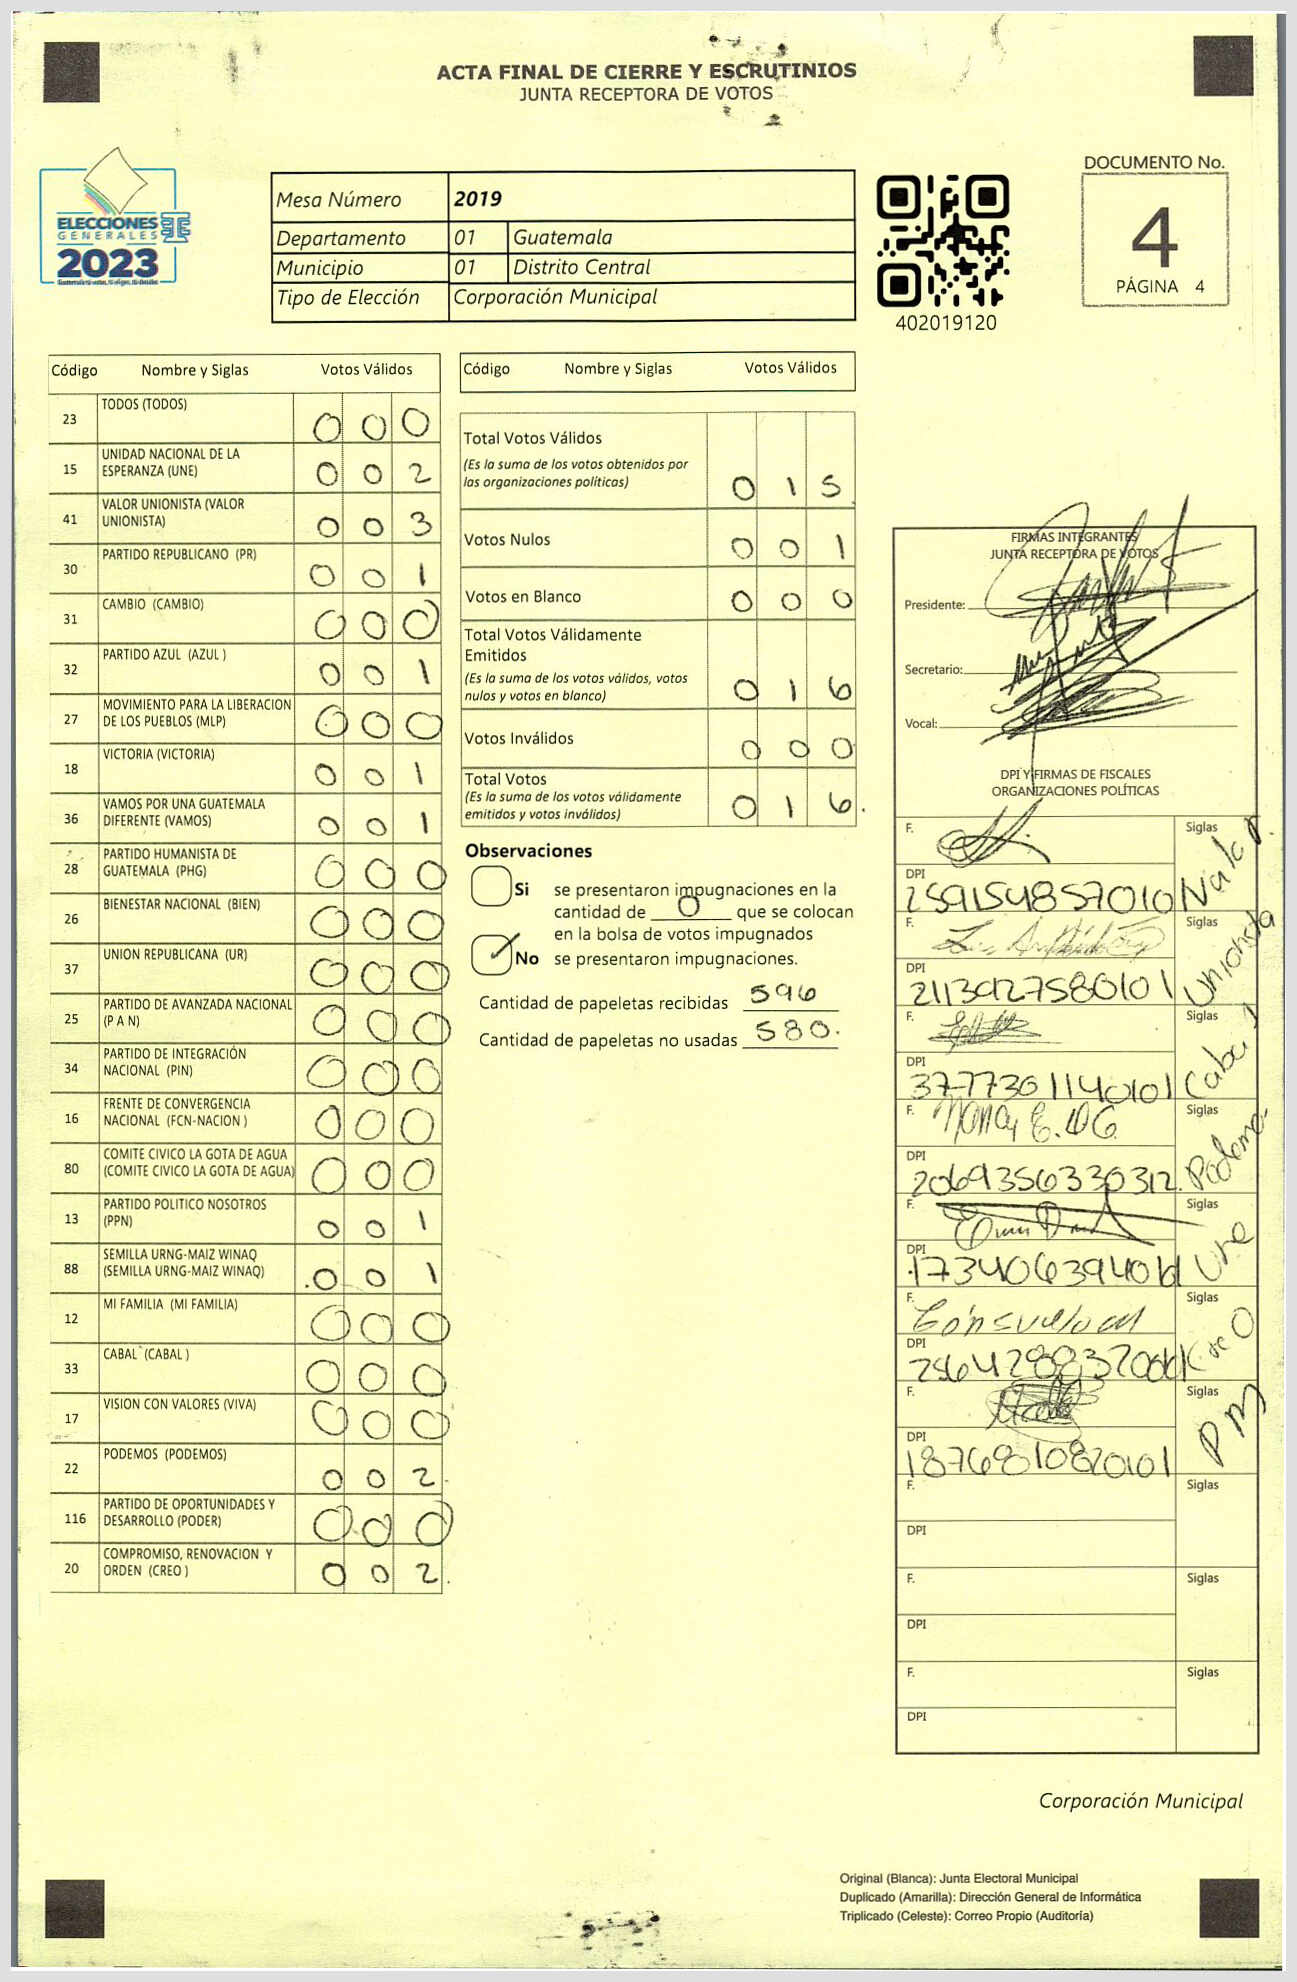 ACTA FINAL DE CIERRE Y ESCRUTINIOS
JUNTA RECEPTORA DE VOTOS
ELECCIONES
GENERALES
2023
Mesa Número 2019
Departamento 01 Guatemala
Municipio 01 Distrito Central
Tipo de Elección Corporación Municipal
402019120
DOCUMENTO No.
4
PÁGINA 4
Código Nombre y Siglas Votos Válidos
23 TODOS (TODOS) 0 0 0
15 UNIDAD NACIONAL DE LA
ESPERANZA (UNE) 0 0 2
41 VALOR UNIONISTA (VALOR
UNIONISTA) 0 0 3
30 PARTIDO REPUBLICANO (PR) 0 0 1
31 CAMBIO (CAMBIO) 0 0 0
32 PARTIDO AZUL (AZUL ) 0 0 1
27 MOVIMIENTO PARA LA LIBERACION
DE LOS PUEBLOS (MLP) 0 0 0
18 VICTORIA (VICTORIA) 0 0 1
36 VAMOS POR UNA GUATEMALA
DIFERENTE (VAMOS) 0 0 1
28 PARTIDO HUMANISTA DE
GUATEMALA (PHG) 0 0 0
26 BIENESTAR NACIONAL (BIEN) 0 0 0
37 UNION REPUBLICANA (UR) 0 0 0
25 PARTIDO DE AVANZADA NACIONAL
(P A N) 0 0 0
34 PARTIDO DE INTEGRACIÓN
NACIONAL (PIN) 0 0 0
16 FRENTE DE CONVERGENCIA
NACIONAL (FCN-NACION ) 0 0 0
80 COMITE CIVICO LA GOTA DE AGUA
(COMITE CIVICO LA GOTA DE AGUA) 0 0 0
13 PARTIDO POLITICO NOSOTROS
(PPN) 0 0 1
88 SEMILLA URNG-MAIZ WINAQ
(SEMILLA URNG-MAIZ WINAQ) 0 0 1
12 MI FAMILIA (MI FAMILIA) 0 0 0
33 CABAL (CABAL ) 0 0 0
17 VISION CON VALORES (VIVA) 0 0 0
22 PODEMOS (PODEMOS) 0 0 2
116 PARTIDO DE OPORTUNIDADES Y
DESARROLLO (PODER) 0 0 0
20 COMPROMISO, RENOVACION Y
ORDEN (CREO ) 0 0 2
Código Nombre y Siglas Votos Válidos
Total Votos Válidos
(Es la suma de los votos obtenidos por
las organizaciones políticas) 0 1 5
Votos Nulos 0 0 1
Votos en Blanco 0 0 0
Total Votos Válidamente
Emitidos
(Es la suma de los votos válidos, votos
nulos y votos en blanco) 0 1 6
Votos Inválidos 0 0 0
Total Votos
(Es la suma de los votos válidamente
emitidos y votos inválidos) 0 1 6.
Observaciones
Si se presentaron impugnaciones en la
cantidad de 0 que se colocan
en la bolsa de votos impugnados
No se presentaron impugnaciones.
Cantidad de papeletas recibidas 596
Cantidad de papeletas no usadas 580.
FIRMAS INTEGRANTES
JUNTA RECEPTORA DE VOTOS
Presidente:
Secretario:
Vocal:
DPI Y FIRMAS DE FISCALES
ORGANIZACIONES POLÍTICAS
F. Siglas
DPI
Valor
F. Siglas
DPI
2113927580101 Unionista
F. Siglas
DPI
3777301140101 Cabal
F. Nancy E. Siglas
DPI
2069356330312. Podemos
F. Siglas
DPI
Une
F. Siglas
DPI
F. Siglas
DPI
1876810820101
F. Siglas
DPI
F. Siglas
DPI
F. Siglas
DPI
Corporación Municipal
Original (Blanca): Junta Electoral Municipal
Duplicado (Amarilla): Dirección General de Informática
Triplicado (Celeste): Correo Propio (Auditoría)